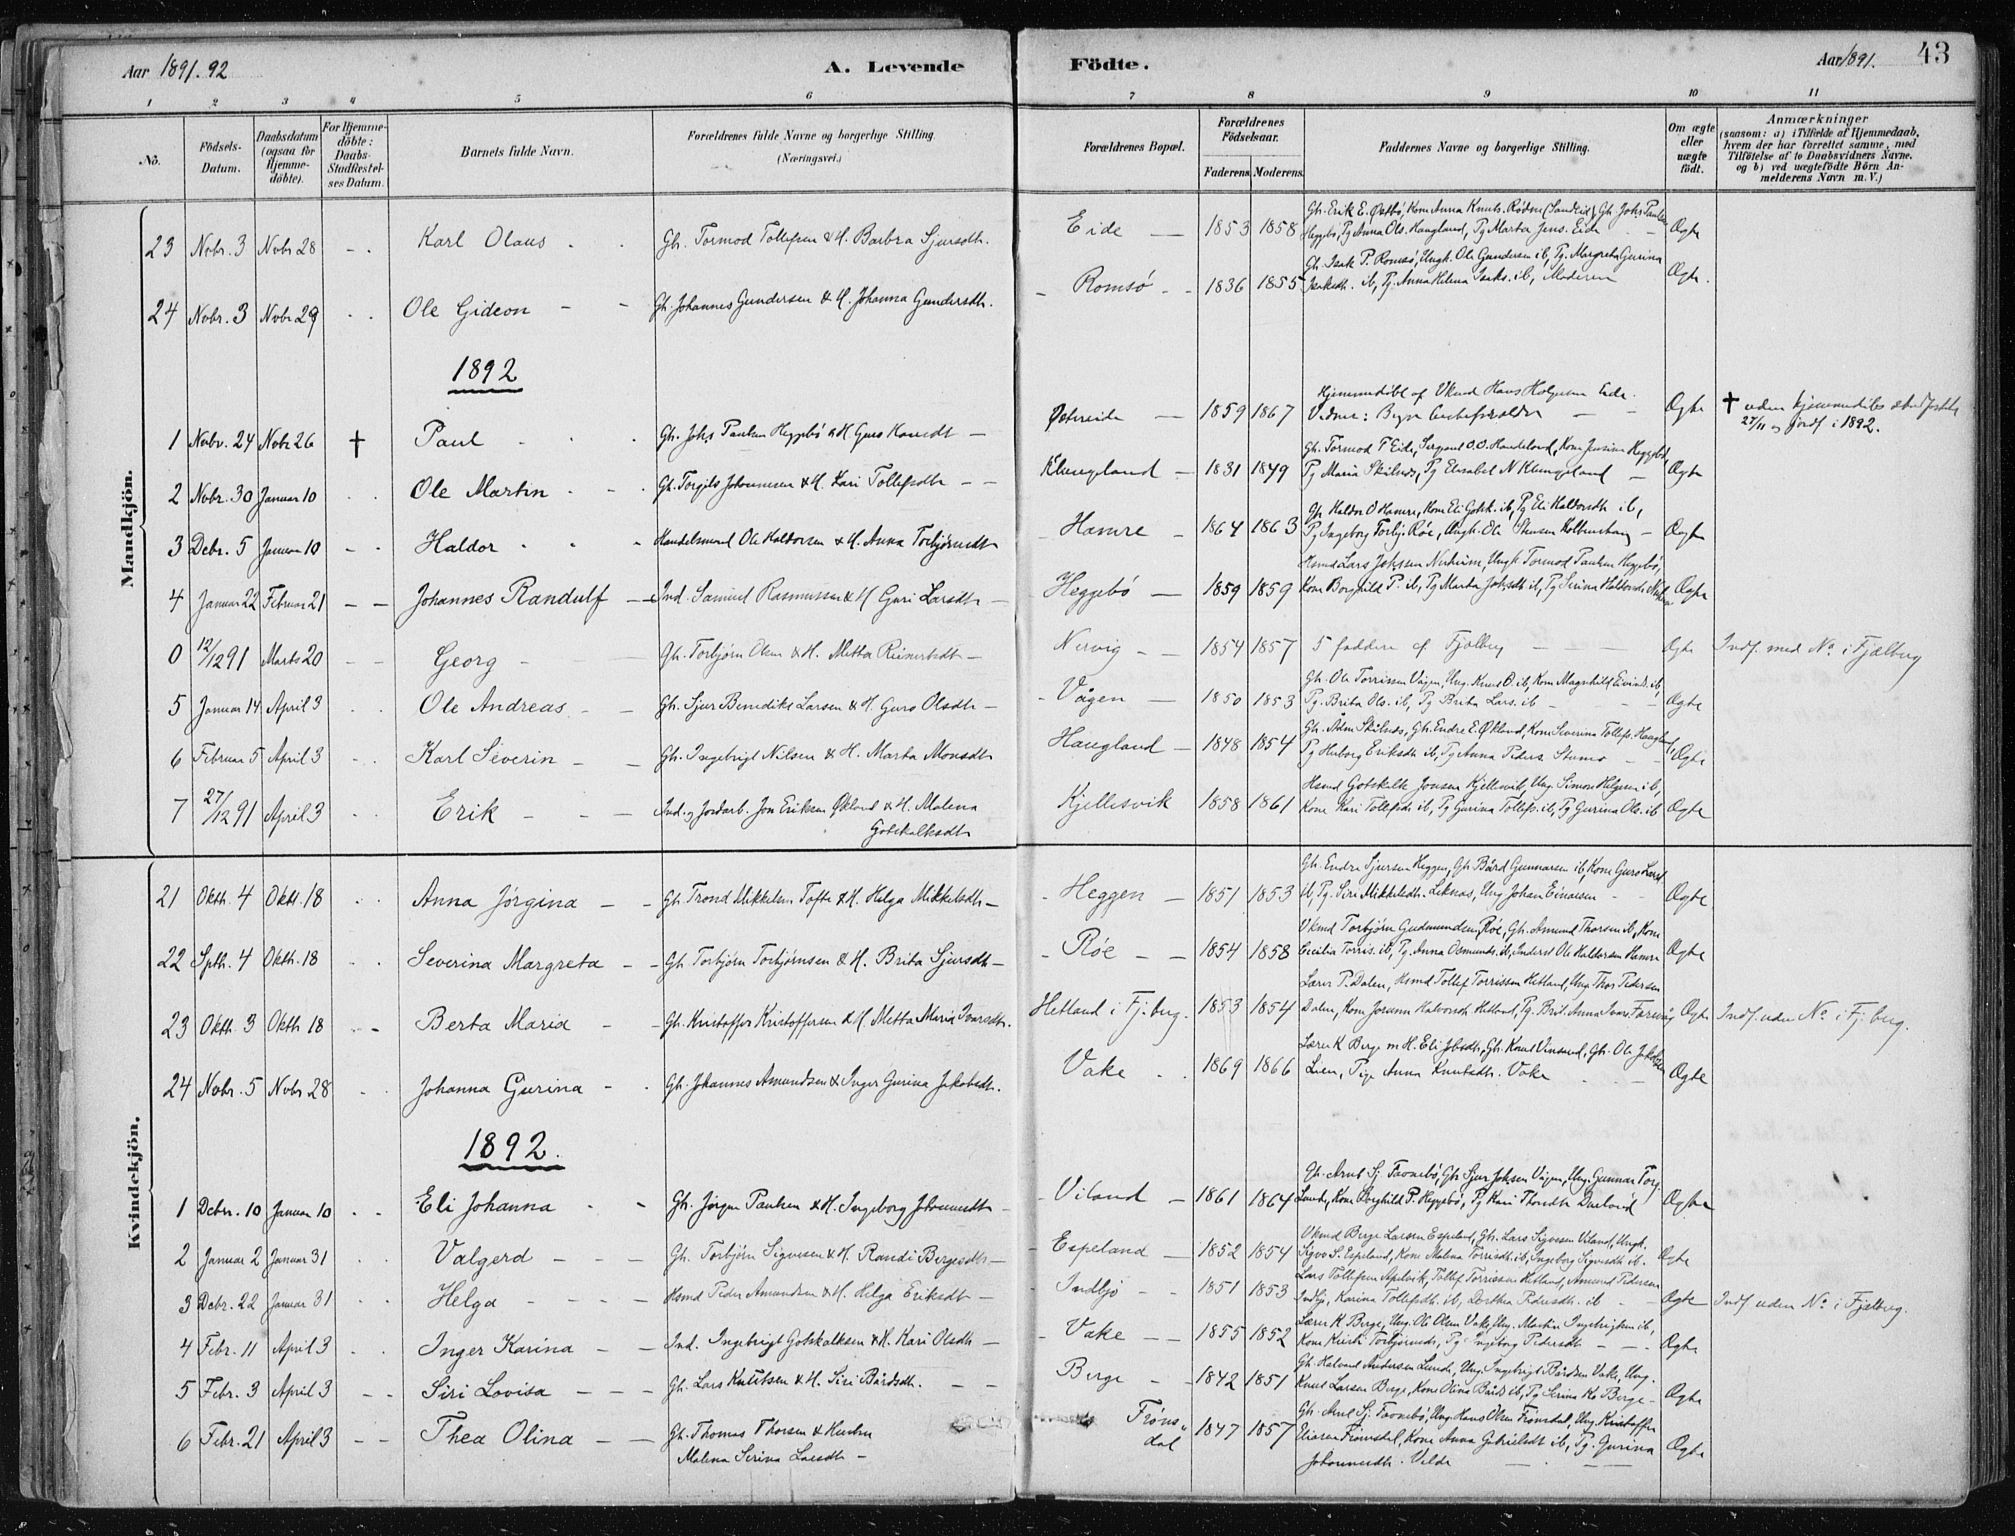 Aar 1891.92 A. Levende Födte. Aar 1891. 43
1 2 3 4 5 6 7 8 9 10 11
No. Födsels-Datum. Daabsdatum (ogsaa for Hjemme-döbte). For Hjemme-döbte: Daabs-Stadfæstel-ses Datum. Barnets fulde Navn. Forældrenes fulde Navne og borgerlige Stilling. (Næringsvei.) Forældrenes Bopæl. Forældrenes Födselsaar. Faderens. Moderens. Faddernes Navne og borgerlige Stilling. Om ægte eller uægte födt. Anmærkninger (saasom: a) i Tilfælde af Hjemmedaab, hvem der har forrettet samme, med Tilföielse af to Daabsvidners Navne, og b) ved uægtefödte Börn An-melderens Navn m. V.)
Mandkjön.
23 Nobr. 3 Nobr 28 Karl Olaus Gh. Tormod Tollefsen & H. Barbra Sjursdtr. Eide 1853 1858 Gh. Erik E. Østbö, Kone Anna Knuts. Rödne (Sandeid), Gh. Johs Paulsen Heggebö, Pg Anna Ols. Haugland, Pg Marta Jens. Eide Ægte
24 Nobr. 3 Nobr 29 Ole Gideon Gh. Johannes Gundersen & H. Johanna Gundersdtr. Romsö 1836 1855 Gh. Isak P. Romsö, Ungk. Ole Gundersen ib, Pg. Margreta Gurina Isaksdtr. ib, Pg. Anna Helena Isaks. ib, Moderen Ægte.
1892
1 Nobr. 24 Nobr 26 † Paul Gh. Johs Paulsen Heggebö & H. Guro 1859 1867 Hjemmedöbt af Hans Vidner: Ægte † 27/11 og jordf. i 1892.
2 Nobr. 30 Januar 10 Ole Martin Gh. Torgils Johannesen & H. Kari Tollefsdtr Klungland 1831 1849 Gh. Tormod T Eide, Sergeant O.O. Kone Jensine Heggebö, Pg Maria Pg Elisabet N Klungeland Ægte
3 Debr. 5 Januar 10 Haldor Handelsmand Ole Haldorsen & H. Anna Torbjörnsdtr Hamre 1864 1863 Gh. Haldor O Hamre, Kone Eli Gotsk. ib, Pg Eli Haldorsdtr ib, Pg Ingeborg Torbj. Röe, Ungk. Ole Ægte
4 Januar 22 Februar 21 Johannes Randulf Ind. Samuel Rasmussen & H. Guri Larsdtr Heggebö 1859 1859 Husmd Lars Johssen Ungk Tormod Paulsen Heggebö, Kone Borghild P. ib, Pg Marta Johsdtr ib, Pg Serina Ægte
0 12/12 91 Marts 20 Georg Gh. Torbjörn Olsen & H. Metta Reinertsdtr Nervig 1854 1857 5 faddere af Fjelberg Ægte Indf. med No. i Fjælberg
5 Januar 14 April 3 Ole Andreas Gh. Sjur Benedikt Larsen & H. Guro Olsdtr Vågen 1850 1853 Gh. Ole Torrissen Vågen, Ung. Knut O. ib, Kone Magnhild Eivinds. ib, Pg. Brita Ols. ib, Pg Brita Lars. ib Ægte
6 Februar 5 April 3 Karl Severin Gh. Ingebrigt Nilsen & H. Marta Monsdtr Haugland 1848 1854 Gh. Gh. Endre E. Økland, Kone Severina Tollefs. Haugland, Pg Eriksdtr ib, Pg Anna Peders. Ægte
7 27/12 91 April 3 Erik Ind. og Jordarb. Jon Eriksen Økland & H. Malena Gotskalksdtr Kjellesvik 1858 1861 Husmd Gotskalk Jonsen Kjellesvik, Ung. Simon Helgesen ib, Kone Kari Tollefsdtr ib, Pg Gurina Tollefs. ib, Pg Gurina Ols. ib Ægte
Kvindekjön.
21 Oktb. 4 Oktb. 18 Anna Jörgina Gh. Trond Mikkelsen Tofte & H. Helga Mikkelsdtr Heggen 1851 1853 Gh. Endre Sjursen Heggen, Gh. Bård Gunnarsen ib, Kone Guro Larsd ib, Pg. Siri Mikkelsdtr. Leknes, Ung Johan Einarsen Ægte
22 Sptb. 4 Oktb. 18 Severina Margreta Gh. Torbjörn Torbjörnsen & H. Brita Sjursdtr Röe 1854 1858 Torbjörn Gudmundsen, Röe, Gh. Amund Thorsen ib, Kone Cecilia Torris. ib, Pg. Anna Osmunds. ib, Inderst Ole Haldorsen Hamre Ægte
23 Oktb. 3 Oktb 18 Berta Maria Gh. Kristoffer Kristoffersen & H. Metta Maria Ivarsdtr. Hetland i Fj. berg. 1853 1854 Lærer P. Dalen, Husmd Tollef Torrissen Hetland, Ung. Thor Pedersen Dalen, Kone Jorunn Halvorsdtr Hetland, Pg. Brit. Anna Ivars. Ægte Indf. uden No. i Fj. berg.
24 Nobr. 5 Nobr 28 Johanna Gurina Gh. Johannes Amundsen & Inger Gurina Jakobsdtr. Vake 1869 1866 Lærer K Berge m H. Eli Gh. Knut Gh. Ole Jakobsen Pige Anna Knutsdtr. Vake Ægte
1892.
1 Debr. 10 Januar 10 Eli Johanna Gh. Jörgen Paulsen & H. Ingeborg Johannesdtr Viland 1861 1864 Gh. Arnt Sj. Gh. Sjur Johsen Vågen, Ung. Gunnar Torg Lunde, Kone Borghild P. Heggebö, Pg Kari Ægte
2 Januar 2 Januar 31 Valgerd Gh. Torbjörn Sigvesen & H. Randi Bergesdtr Espeland 1852 1854 Berge Larsen Espeland, Gh. Lars Sigvesen Viland, Ungk. Sigve S. Espeland, Kone Malena Torrisdtr ib, Ingeborg Sigvesdtr ib. Ægte
3 Debr. 22 Januar 31 Helga Husmd Peder Amundsen & H. Helga Eriksdtr Indbjö 1851 1853 Lars Tollefsen Apelvik, Tollef Torrissen Hetland, Amund Pedersen Indbj., Karina Tollefsdtr. ib, Dorthea Pedersdtr. ib Ægte Indf. uden No. i Fjelberg.
4 Febr. 11 April 3 Inger Karina Ind. Ingebrigt Gotskalksen & H. Kari Olsdtr Vake 1855 1852 Lærer K Berge, Ung. Ole Olsen Vake, Ung. Martin Ingebrigtsen ib, Kone Kirsti Torbjörnsd., Pg Ingeborg Pedersdtr Ægte
5 Febr. 3 April 3 Siri Lovisa Gh. Lars Knutsen & H. Siri Bårdsdtr. Berge 1842 1851 Gh. Halvard Andersen Lunde, Ung. Ingebrigt Bårdsen Vake, Ung. Knut Larsen Berge, Kone Olina Bårds ib, Pg Serina Berge Ægte
6 Febr. 21 April 3 Thea Olina Gh. Thomas Thorsen & Hustru Malena Serina Larsdtr Fröns-dal 1847 1757 Gh. Arnt Sj. Ung. Hans Olsen Frönsdal, Ung. Kristoffer Eliasen Frönsdal, Kone Anna Gabrielsdtr ib, Pg. Gurina Johannesdtr. Velde Ægte